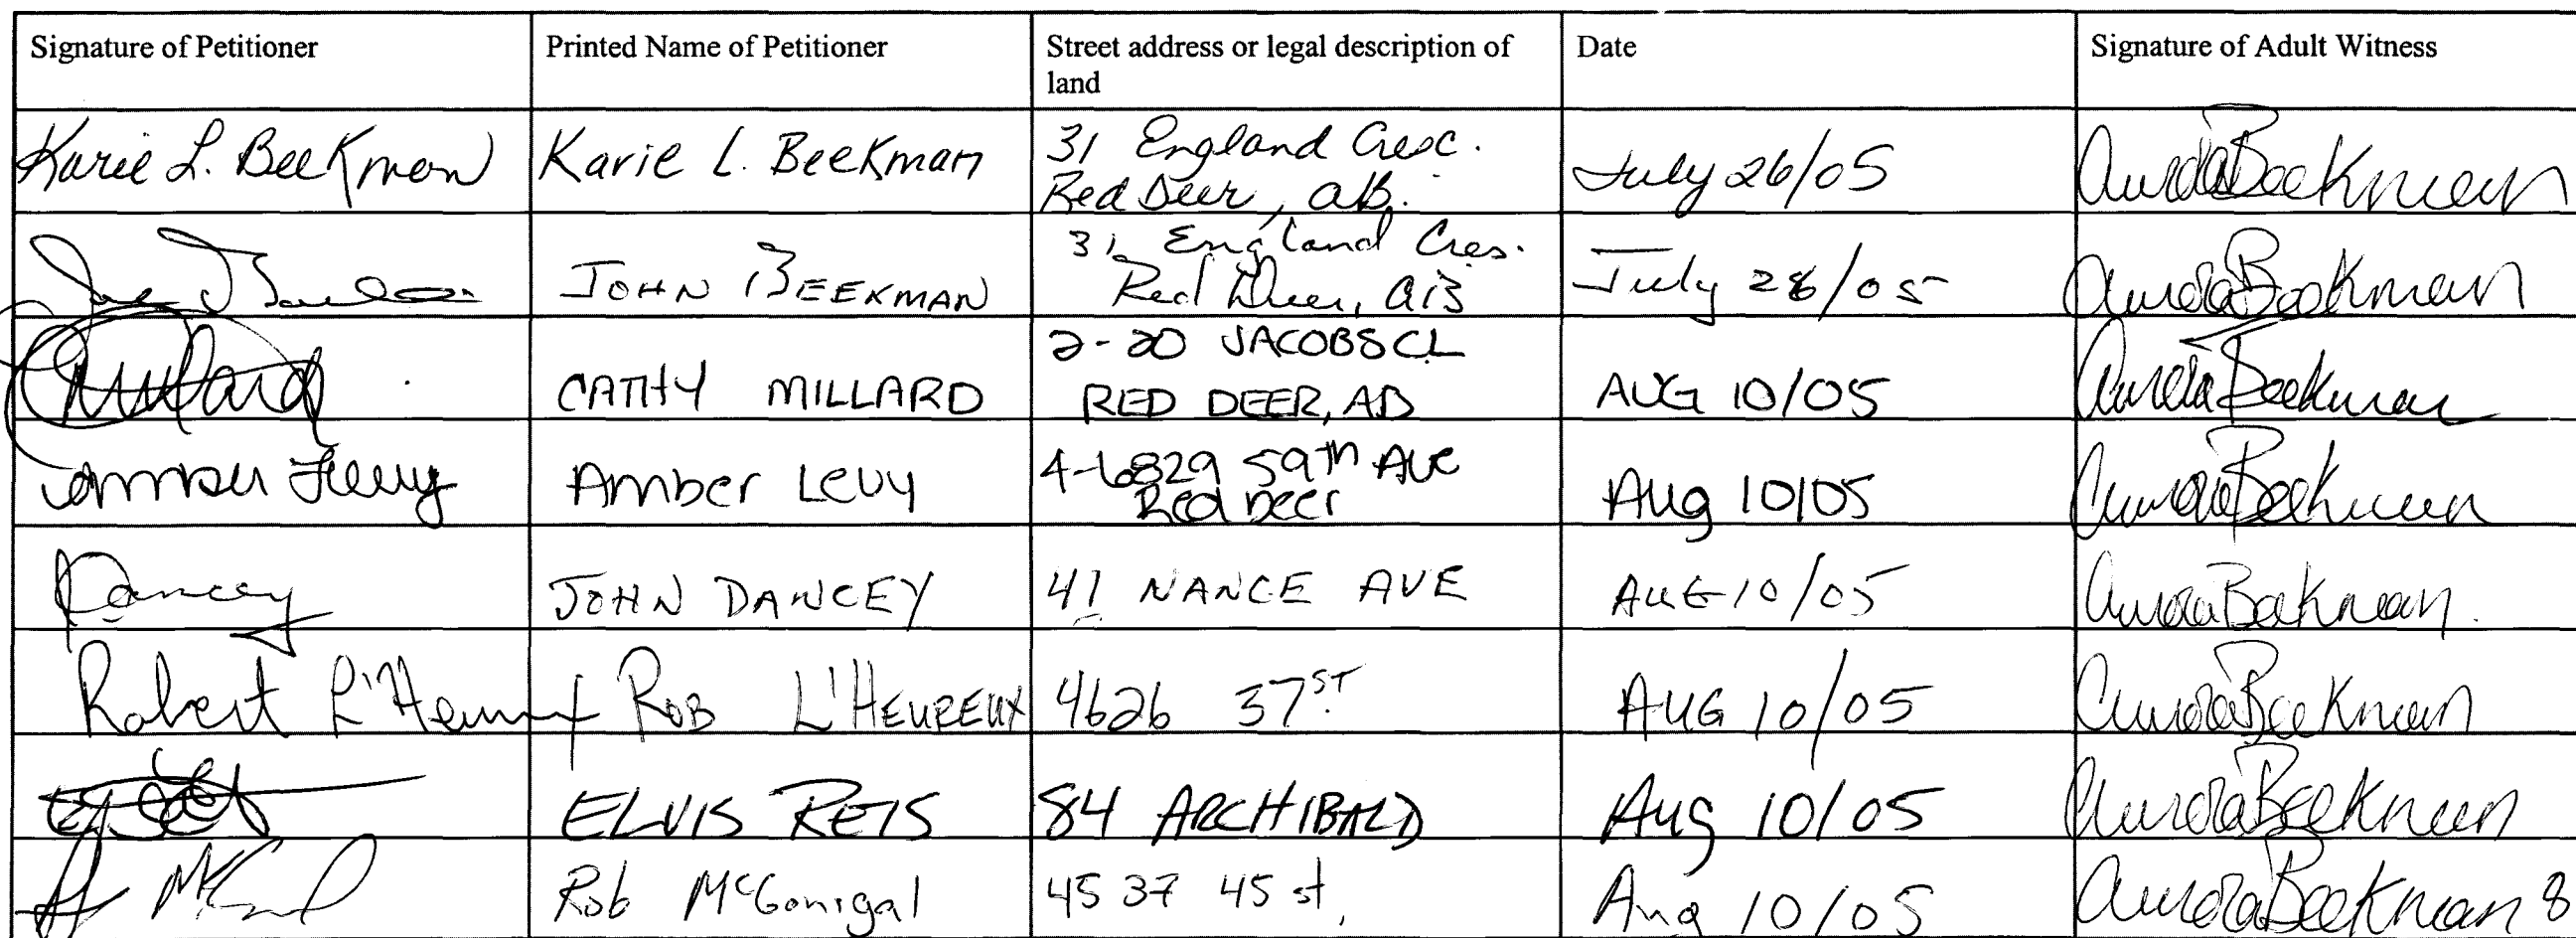 Signature of Petitioner
Printed Name of Petitioner
Street address or legal description of
land
Date
Signature of Adult Witness
Karie L. Beekman
Karie L. Beekman
31 England Cresc.
Red Deer, ab.
July 26/05
Aurora Beekman
JOHN BEEKMAN
31 England Cres.
Red Deer, AB
July 28/05
Aurora Beekman
CMillard
CATHY MILLARD
2-20 JACOBS CL
RED DEER, AB
AUG 10/05
Aurora Beekman
Amber Levy
Amber Levy
4-6829 59th Ave
Red Deer
Aug 10/05
Aurora Beekman
Dancey
JOHN DANCEY
41 NANCE AVE
AUG 10/05
Aurora Beekman
Robert L'Heureux
ROB L'HEUREUX
4626 37ST
AUG 10/05
Aurora Beekman
ELVIS REIS
84 ARCHIBALD
Aug 10/05
Aurora Beekman
Rob McGonigal
4537 45 st,
Aug 10/05
Aurora Beekman 8